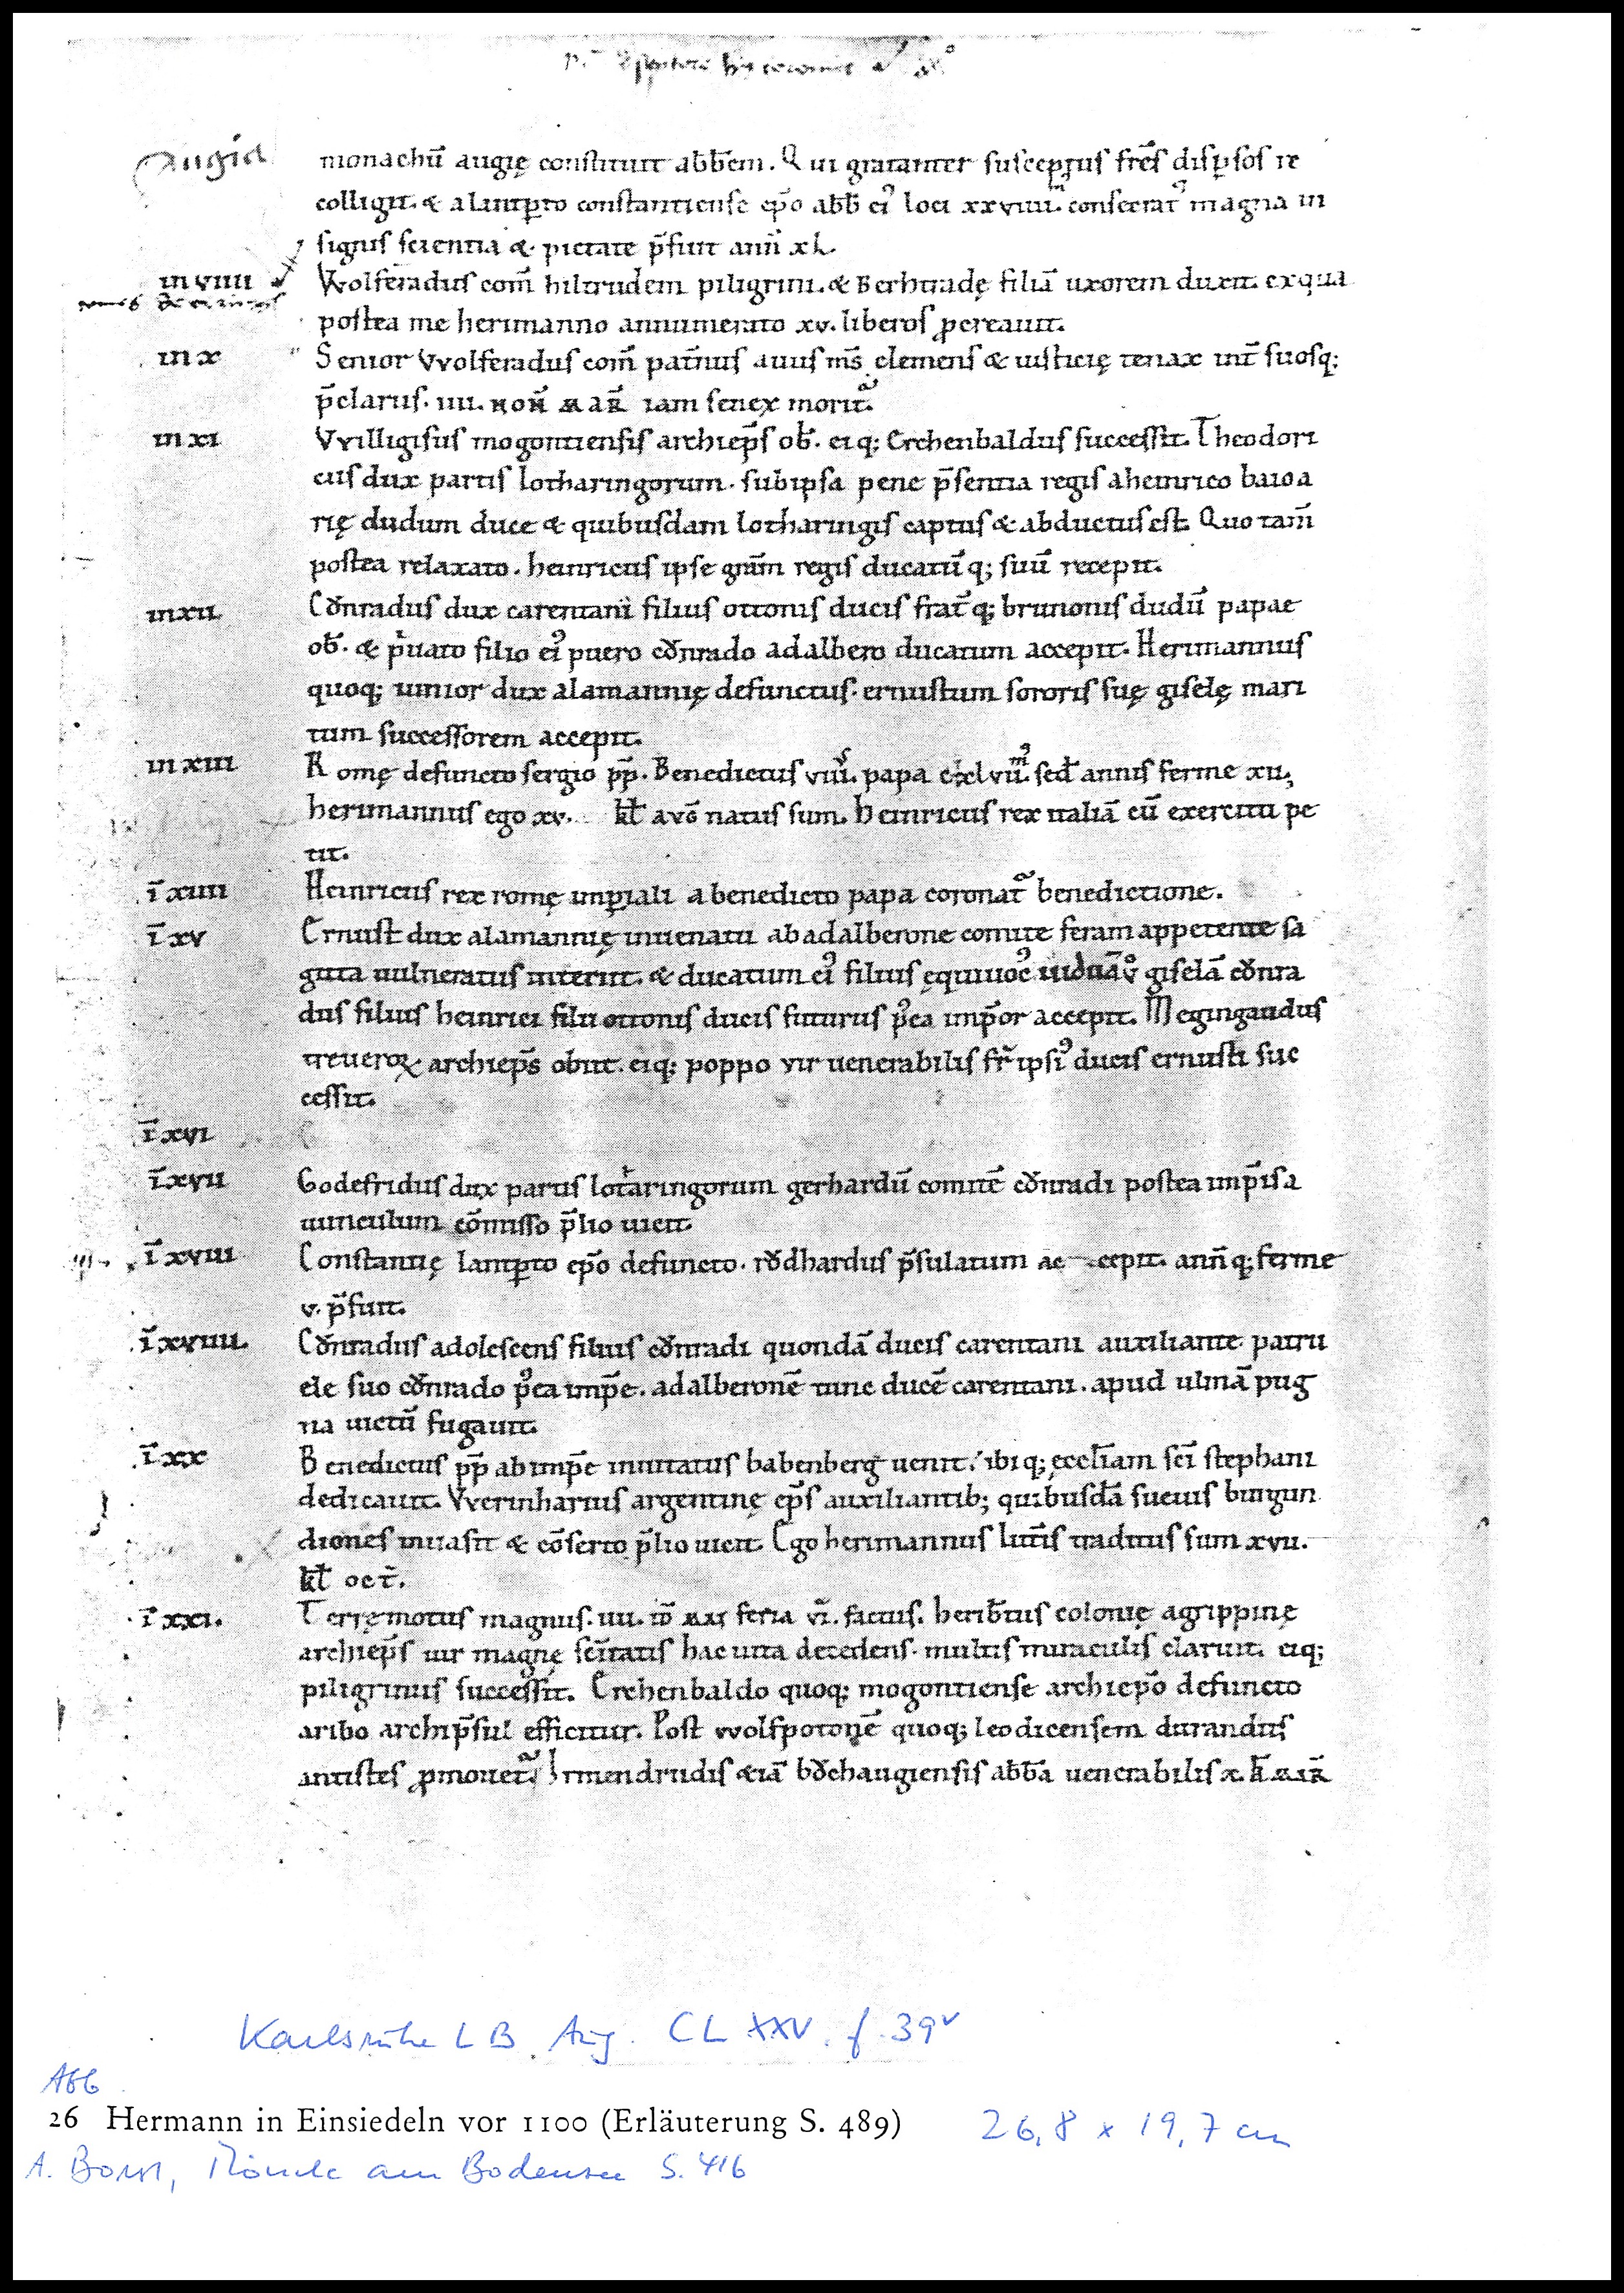 Augia
monachū augię constituit abb̄em. Qui gratanter susceptus fr̄es disꝑsos re
colligit. & a lantꝑto constantiense ep̄o abb̄ eiꝰ loci xxviiii. consecratꝰ magna in
signis scientia & pietate p̄fuit ann̄ xL.
m viiii Wolferadus com̄ hiltrudem piligrini. & Berhtradę filiā uxorem duxit. ex qua
postea me herimanno annumerato xv. liberos ꝓcreauit.
m x Senior Wolferadus com̄ pat̄nus auus m̄s clemens & iusticię tenax int̄ suosq;
p̄clarus. iiii. NON̄ MAR̄ iam senex morit᷑.
m xi VVilligisus mogontiensis archiep̄s ob̄. eiq; Erchenbaldus successit. Theodori
cus dux partis lotharingorum. sub ipsa pene p̄sentia regis a heinrico baioa
rię dudum duce & quibusdam lotharingis captus & abductus est. Quo tam̄
postea relaxato. heinricus ipse grām regis ducatū q; suū recepit.
m xii Cůnradus dux carentani filius ottonis ducis frat̄ q; brunonis dudū papae
ob̄. & pͥuato filio eiꝰ puero cůnrado adalbero ducatum accepit. Herimannus
quoq; iunior dux alamannię defunctus. ernustum sororis suę giselę mari
tum successorem accepit.
m xiii Romę defuncto sergio pp̄. Benedictus viii. papa cxlvii. sed̄ annis ferme xii;
herimannus ego xv. kl̄ avḡ natus sum. Heinricus rex italiā cū exercitu pe
tit.
ī xiiii Heinricus rex romę imꝑiali a benedicto papa coronat᷑ benedictione.
ī xv Ernust dux alamannię in uenatu ab adalberone comite feram appetente sa
gitta uulneratus interiit. & ducatum eiꝰ filius ęquiuocꝰ uiduā v̊ giselā cůnra
dus filius heinrici filii ottonis ducis futurus pꝰea imp̄or accepit. Megingaudus
treueroꝝ archiep̄s obiit. eiq; poppo vir uenerabilis fr̄ ipsiꝰ ducis ernusti suc
cessit.
ī xvi
ī xvii Godefridus dux partis lotharingorum gerhardū comitē cůnradi postea imp̄is a
uunculum cōmisso p̄lio uicit.
ī xviii Constantię lantꝑto ep̄o defuncto. růdhardus p̄sulatum ac cepit. ann̄ q; ferme
v. p̄fuit.
ī xviiii Cůnradus adolescens filius cůnradi quondā ducis carentani auxiliante patru
ele suo cůnrado pꝰea imp̄e. adalberonē tunc ducē carentani. apud ulmā pug
na uictū fugauit.
ī xx Benedictus pp̄ ab imp̄e inuitatus babenberg uenit. ibiq; eccl̄iam sc̄i stephani
dedicauit. VVerinharius argentinę ep̄s auxiliantib; quibusdā sueuis burgun
diones inuasit & cōserto p̄lio uicit. Ego herimannus litt̄is traditus sum xvii.
kl̄ oct̄.
ī xxi. Terręmotus magnus. iiii. id̄ MAI feria vi. factus. herib̄tus colonię agrippinę
archiep̄s uir magnę sc̄itatis hac uita decedens. multis miraculis claruit. eiq;
piligrinus successit. Erchenbaldo quoq; mogontiense archiep̄o defuncto
aribo archip̄sul efficitur. Post wolfpotonē quoq; leodicensem durandus
antistes ꝓmouet᷑. Irmendrudis &iā bůchaugiensis abb̄a uenerabilis x. k̄ MAR̄
Karlsruhe LB. Aug. CLXXV. f. 39v
Abb
26 Hermann in Einsiedeln vor 1100 (Erläuterung S. 489) 26,8 x 19,7 cm
A. Borst, Mönche am Bodensee S. 416